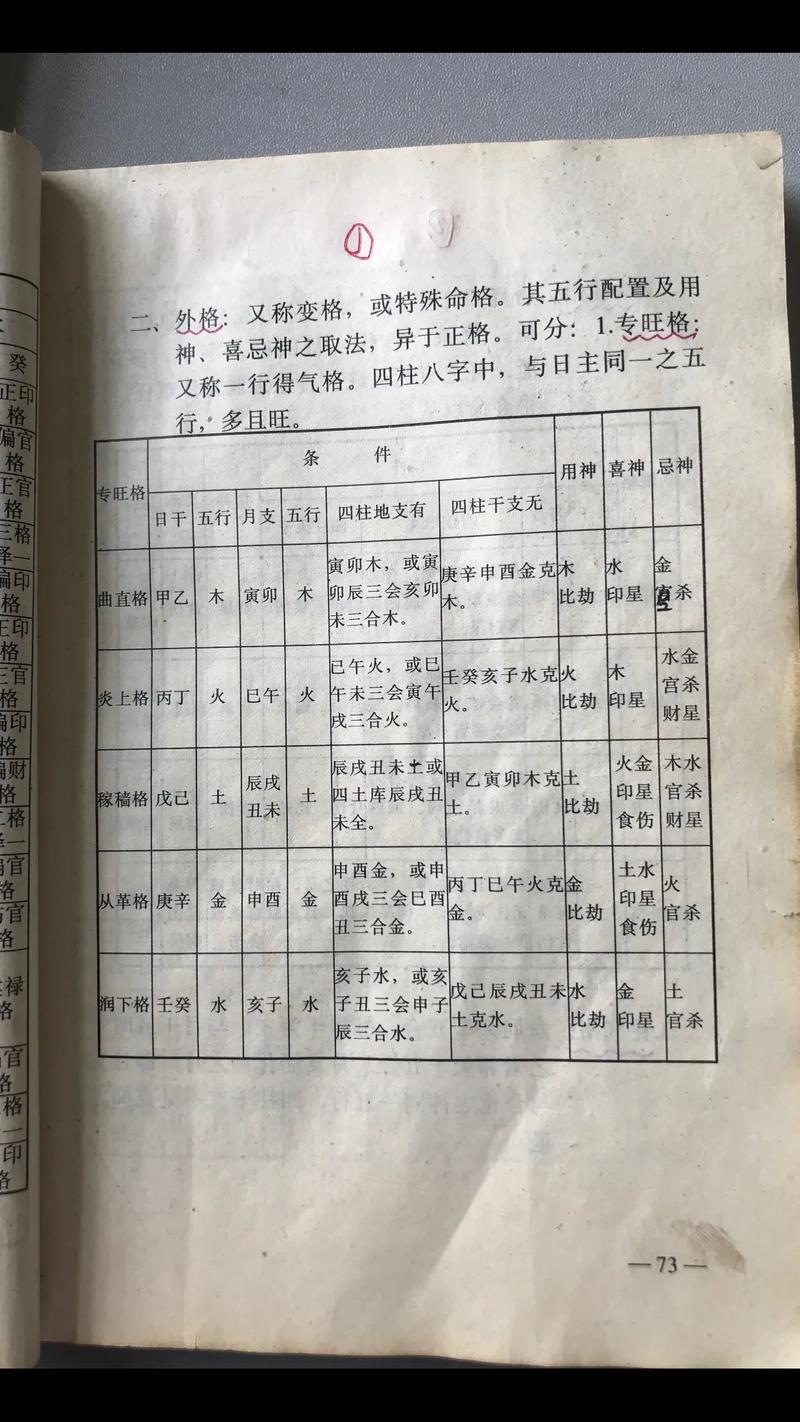 ①
二、外格：又称变格，或特殊命格。其五行配置及用
神、喜忌神之取法，异于正格。可分：1.专旺格；
又称一行得气格。四柱八字中，与日主同一之五
行，多且旺。
专旺格 条 件 用神 喜神 忌神
日干 五行 月支 五行 四柱地支有 四柱干支无
曲直格 甲乙 木 寅卯 木
寅卯木，或寅
卯辰三会亥卯
未三合木。
庚辛申酉金克
木。
木
比劫
水
印星
金
官杀
炎上格 丙丁 火 巳午 火
巳午火，或巳
午未三会寅午
戌三合火。
壬癸亥子水克
火。
火
比劫
木
印星
水金
宫杀
财星
稼穑格 戊己 土
辰戌
丑未
土
辰戌丑未土或
四土库辰戌丑
未全。
甲乙寅卯木克
土。
土
比劫
火金
印星
食伤
木水
官杀
财星
从革格 庚辛 金 申酉 金
申酉金，或申
酉戌三会巳酉
丑三合金。
丙丁巳午火克
金。
金
比劫
土水
印星
食伤
火
官杀
润下格 壬癸 水 亥子 水
亥子水，或亥
子丑三会申子
辰三合水。
戊己辰戌丑未
土克水。
水
比劫
金
印星
土
官杀
—73—
癸
正印
格
偏官
格
正官
格
三格
择一
偏印
格
正印
格
正官
格
偏印
格
偏财
格
格
官
格
官
格
禄
格
官
格
格
一
印
格